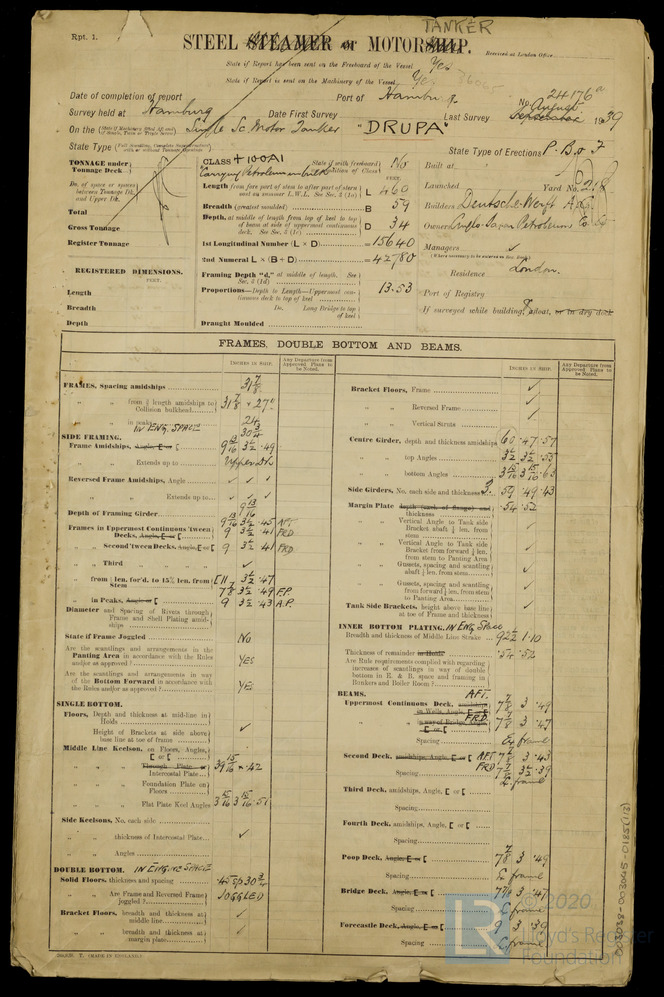 TANKER
Rpt. 1.
STEEL STEAMER or MOTORSHIP.
Received at London Office
State if Report has been sent on the Freeboard of the Vessel Yes
State if Report is sent on the Machinery of the Vessel Yes
Date of completion of report
Port of Hamburg.
No. 24176
Survey held at Hamburg
Date First Survey
Last Survey August September 1939
On the
Single Sc. Motor Tanker "DRUPA"
State Type
State Type of Erections P. B. & F
TONNAGE under Tonnage Deck
Do. of space or spaces between Tonnage Dk. and Upper Dk.
Total
Gross Tonnage
Register Tonnage
REGISTERED DIMENSIONS.
FEET.
Length
Breadth
Depth
CLASS +100A1 State if with freeboard condition of Class No
"Carrying Petroleum in bulk"
Length from fore part of stem to after part of stern post on summer L.W.L. See Sec. 2 (1a) L 460
Breadth (greatest moulded) B 59
Depth, at middle of length from top of keel to top of beam at side of uppermost continuous deck. See Sec. 2 (1c) D 34
1st Longitudinal Number (L × D) = 15640
2nd Numeral L × (B + D) = 42780
Framing Depth "d," at middle of length. See Sec. 2 (1d)
Proportions—Depth to Length—Uppermost continuous deck to top of keel 13.53
Do. Long Bridge to top of keel
Draught Moulded
Built at "
Launched
Yard No.
Builders Deutsche Werft A.G.
Owners Anglo-Saxon Petroleum Co.
Managers
Residence London.
Port of Registry
If surveyed while building, afloat, or in dry dock
FRAMES, DOUBLE BOTTOM AND BEAMS.
INCHES IN SHIP.
Any Departure from Approved Plans to be Noted.
FRAMES, Spacing amidships 31 7/8
" " from 1/5 length amidships to Collision bulkhead 31 7/8 & 27"
" " in peaks 24
IN ENG. SPACE 30 3/4
SIDE FRAMING.
Frame Amidships, Angle, [ or [ 9 13/16 3 1/2 .49
" " Extends up to Upper Dk
Reversed Frame Amidships, Angle ✓ ✓ ✓
" " Extends up to ✓ ✓
Depth of Framing Girder 9 13/16
Frames in Uppermost Continuous 'Tween Decks, Angle, [ or [ 9 3 1/2 .45 AFT
9 3 1/2 .41 FRD
" " Second 'Tween Decks, Angle, [ or [ 9 3 1/2 .41 FRD
" " Third " " " ✓
" from 1/5 len. for'd. to 15% len. from Stem [11 3 1/2 .47
" in Peaks, Angle or [ 7 7/8 3 1/2 .49 F.P.
9 3 1/2 .43 A.P.
Diameter and Spacing of Rivets through Frame and Shell Plating amidships
State if Frame Joggled No
Are the scantlings and arrangements in the Panting Area in accordance with the Rules and/or as approved? YES
Are the scantlings and arrangements in way of the Bottom Forward in accordance with the Rules and/or as approved? YES
SINGLE BOTTOM.
Floors, Depth and thickness at mid-line in Holds
" Height of Brackets at side above base line at toe of frame ✓
Middle Line Keelson, on Floors, Angles, [ or [
" " Through Plate or Intercostal Plate 39 15/16 × .42
" " Foundation Plate on Floors
" " Flat Plate Keel Angles 3 15/16 3 15/16 .51
Side Keelsons, No. each side
" " thickness of Intercostal Plate ✓
" " Angles
DOUBLE BOTTOM. IN ENGINE SPACE
Solid Floors, thickness and spacing .45 sp 30 3/4
" " Are Frame and Reversed Frame joggled? JOGGLED
Bracket Floors, breadth and thickness at middle line ✓
" " breadth and thickness at margin plate ✓
Bracket Floors, Frame ✓
" " Reversed Frame ✓
" " Vertical Struts ✓
Centre Girder, depth and thickness amidships 60 .47 .57
" " top Angles 3 1/2 3 1/2 .53
" " bottom Angles 3 15/16 3 15/16 .63
Side Girders, No. each side and thickness 3 .59 .49 .43
Margin Plate depth (excl. of flange) and thickness .54 .52
" Vertical Angle to Tank side Bracket abaft 1/4 len. from stem ✓
" Vertical Angle to Tank side Bracket from forward 1/4 len. from stem to Panting Area ✓
" Gussets, spacing and scantling abaft 1/4 len. from stem ✓
" Gussets, spacing and scantling from forward 1/4 len. from stem to Panting Area ✓
Tank Side Brackets, height above base line at toe of Frame and thickness ✓
INNER BOTTOM PLATING. IN ENG. SPACE
Breadth and thickness of Middle Line Strake 92 1/2 1.10
Thickness of remainder in Holds .54 .52
Are Rule requirements complied with regarding increases of scantlings in way of double bottom in E. & B. space and framing in Bunkers and Boiler Room?
BEAMS. AFT.
Uppermost Continuous Deck, amidships on Wells, Angle, [ or [ 7 7/8 3 .49
" in way of Bridge, Angle, [ or [ FRD. 7 7/8 3 .47
Spacing Ev. frame
Second Deck, amidships, Angle, [ or [ AFT 7 7/8 3 .43
Spacing FRD 7 7/8 3 1/2 .39
Ev. frame
Third Deck, amidships, Angle, [ or [
Spacing
Fourth Deck, amidships, Angle, [ or [
Spacing
Poop Deck, Angle, [ or [ 7 7/8 3 .49
Spacing E. frame
Bridge Deck, Angle, [ or [ 7 7/8 3 .47
Spacing E frame
Forecastle Deck, Angle, [ or [ 9 3 .39
Spacing E frame
(MADE IN ENGLAND.)
003038-003045-0185(1/2)
© 2020
LR
Lloyd's Register
Foundation